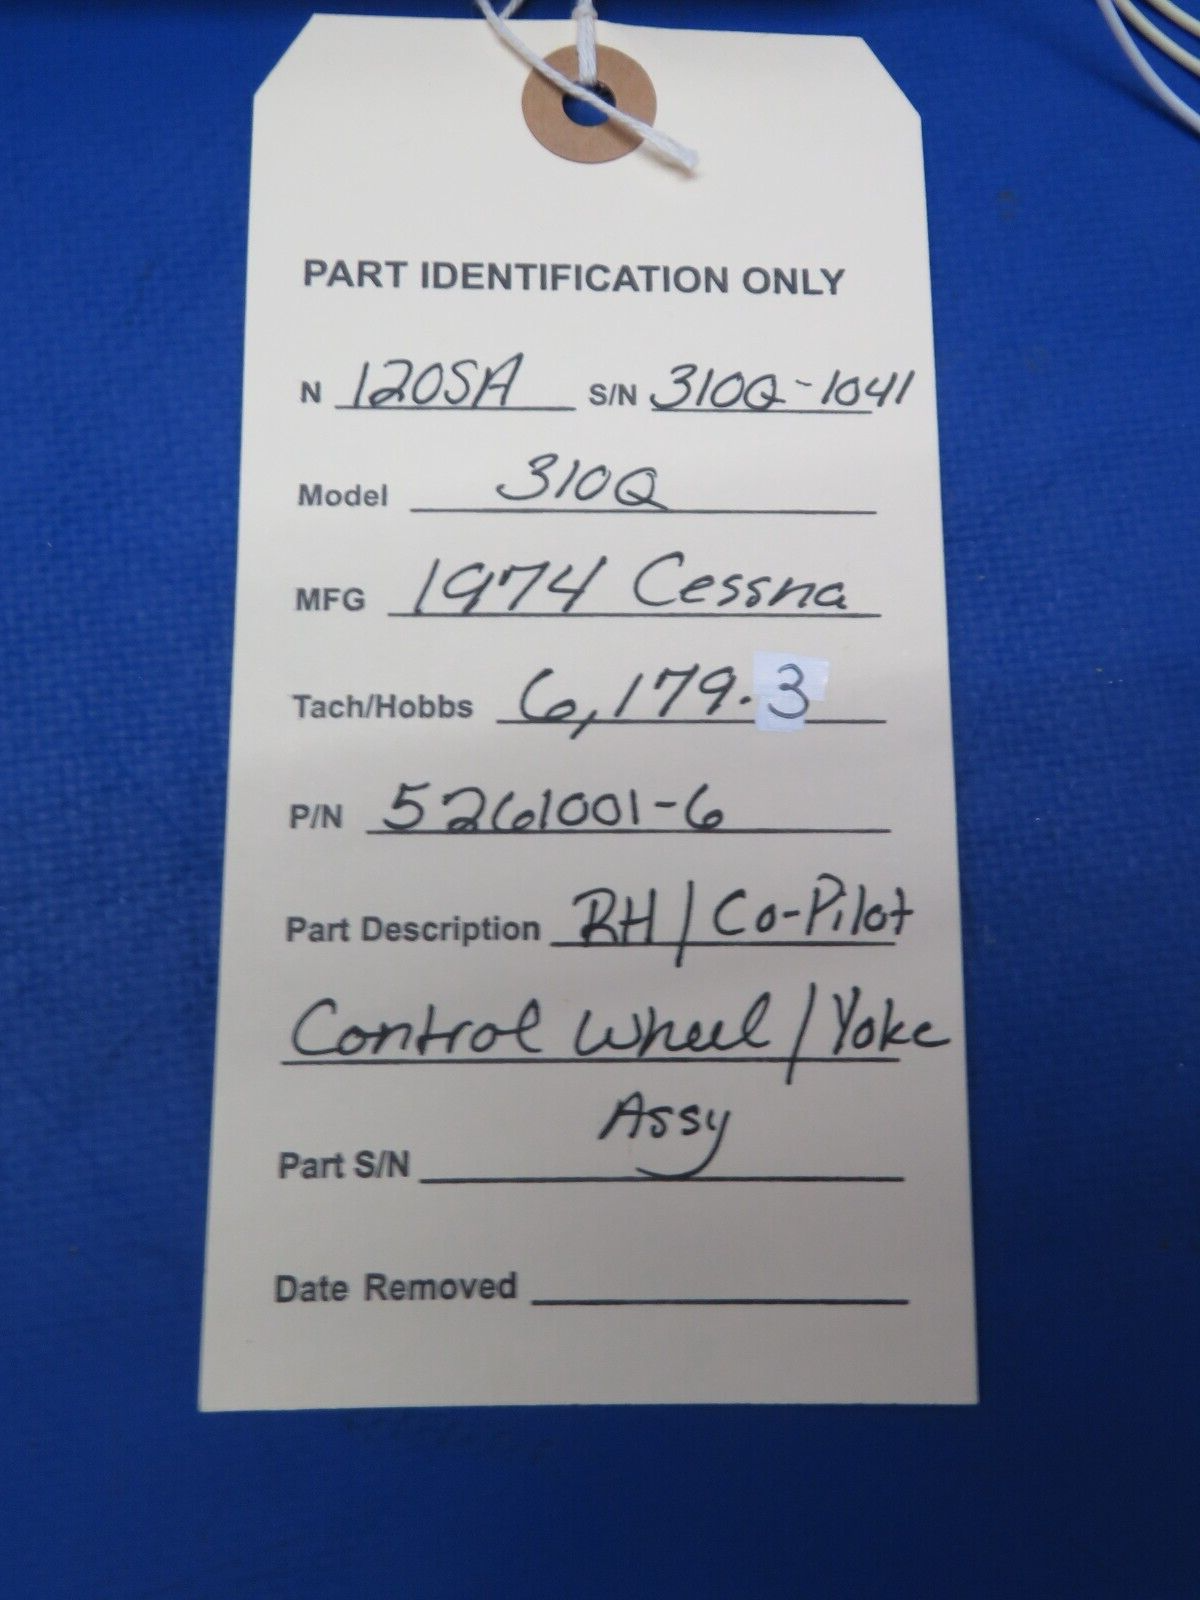 PART IDENTIFICATION ONLY
N 120SA S/N 310Q-1041
Model 310Q
MFG 1974 Cessna
Tach/Hobbs 6,179.3
P/N 5261001-6
Part Description RH/Co-Pilot
Control Wheel/Yoke
Assy
Part S/N
Date Removed